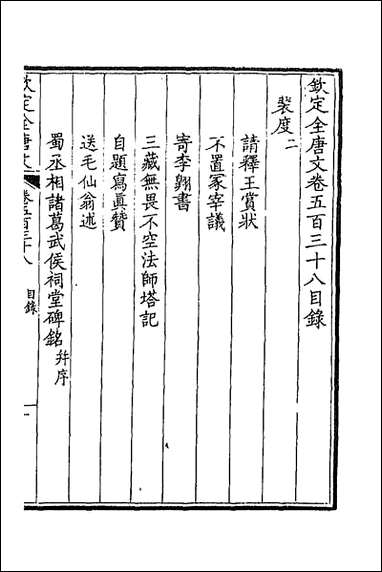 欽定全唐文卷五百三十八目錄
裴度二
請釋王賞狀
不置冢宰議
寄李翺書
三藏無畏不空法師塔記
自題寫眞贊
送毛仙翁述
蜀丞相諸葛武侯祠堂碑銘幷序
欽定全唐文 卷五百三十八 目錄 一